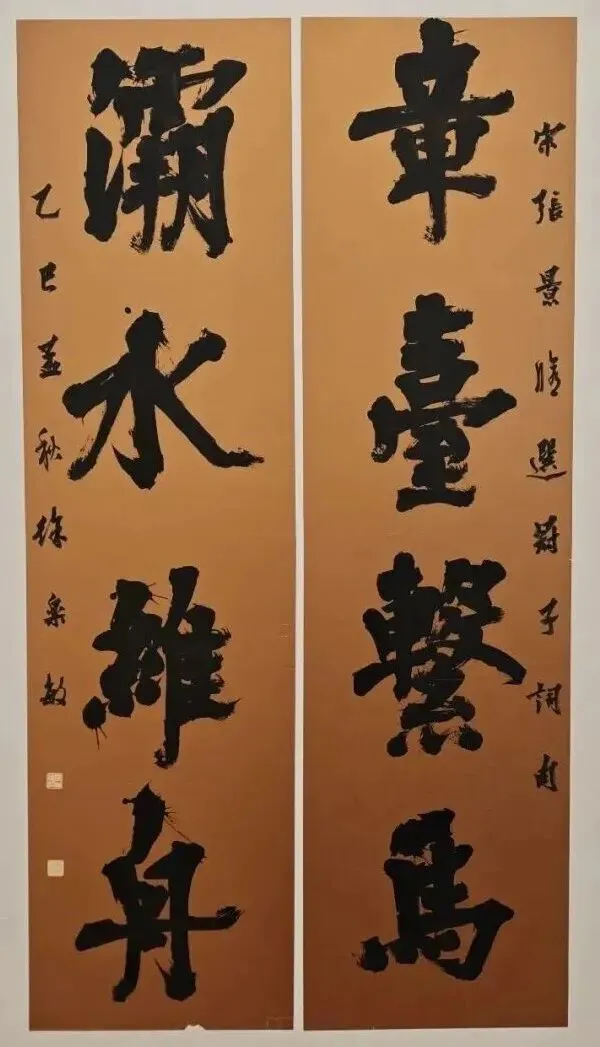 宋張景脩選冠子詞句
章臺繫馬
灞水維舟
乙巳孟秋徐敏